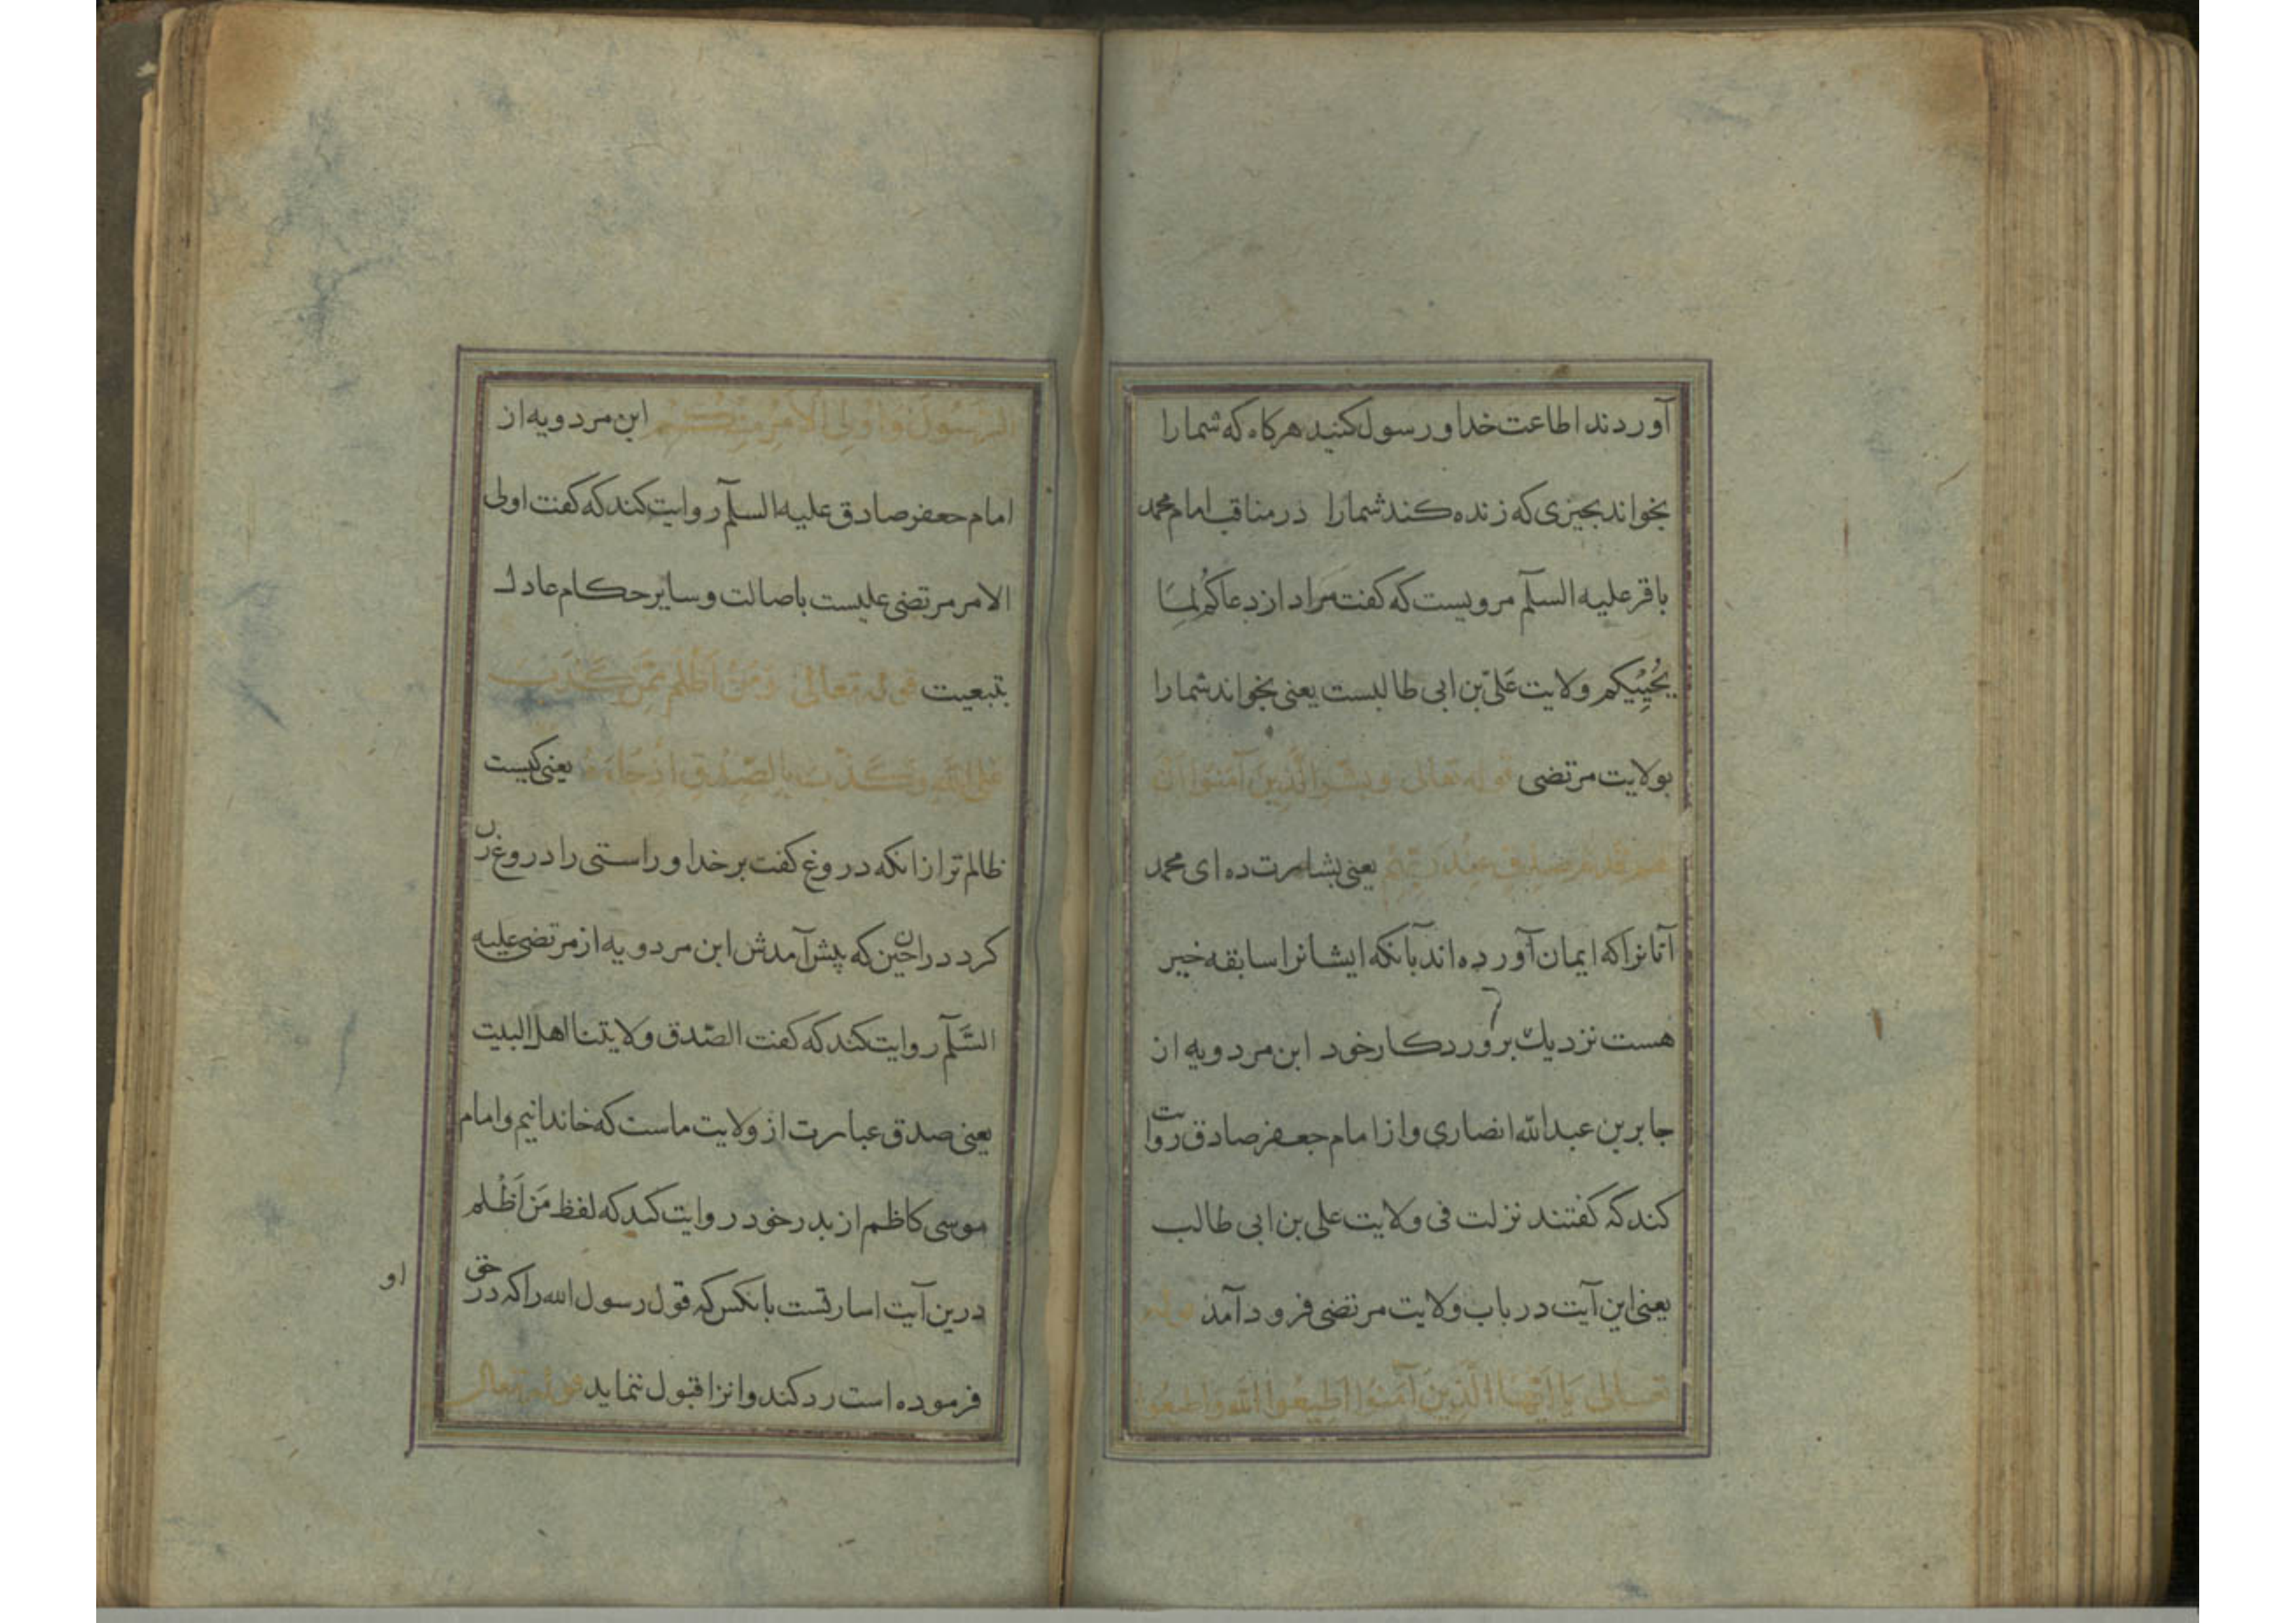 آوردند اطاعت خدا و رسول کنید هرکاه که شما را
بخواند بچیزی که زنده کند شما را در مناقب امام محمد
باقر علیه السلم مرویست که کفت مراد از دعاکم لما
یحییکم ولایت علی بن ابی طالبست یعنی بخواند شما را
بولایت مرتضی قوله تعالی و بشر الذین آمنوا ان
لهم قدم صدق عند ربهم یعنی بشارت ده ای محمد
آنانرا که ایمان آورده اند بآنکه ایشانرا سابقه خیر
هست نزدیك بروردکار خود ابن مردویه از
جابر بن عبد الله انصاری و از امام جعفر صادق روایت
کند که کفتند نزلت فی ولایت علی بن ابی طالب
یعنی این آیت در باب ولایت مرتضی فرود آمد قوله
تعالی یا ایها الذین آمنوا اطیعوا الله و اطیعوا
الرسول و اولی الامر منکم ابن مردویه از
امام جعفر صادق علیه السلم روایت کند که کفت اولی
الامر مرتضی علیست باصالت و سایر حکام عادل
بتبعیت قوله تعالی و من اظلم ممن کذب
علی الله و کذب بالصدق اذ جاءه یعنی کیست
ظالم تر از انکه دروغ کفت بر خدا و راستی را دروغ زن
کرد در ان حین که پیش آمدش ابن مردویه از مرتضی علیه
السلم روایت کند که کفت الصدق ولایتنا اهل البیت
یعنی صدق عبارت از ولایت ماست که خاندانیم و امام
موسی کاظم از بدر خود روایت کند که لفظ من اظلم
درین آیت اسارتست بانکس که قول رسول الله را که در حق
او
فرموده است رد کند و انرا قبول ننماید قوله تعالی